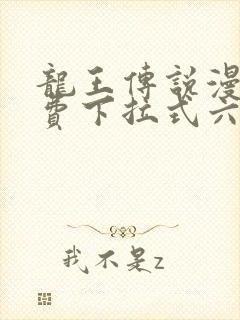 龍王傳說漫
費下拉式六
我不是z